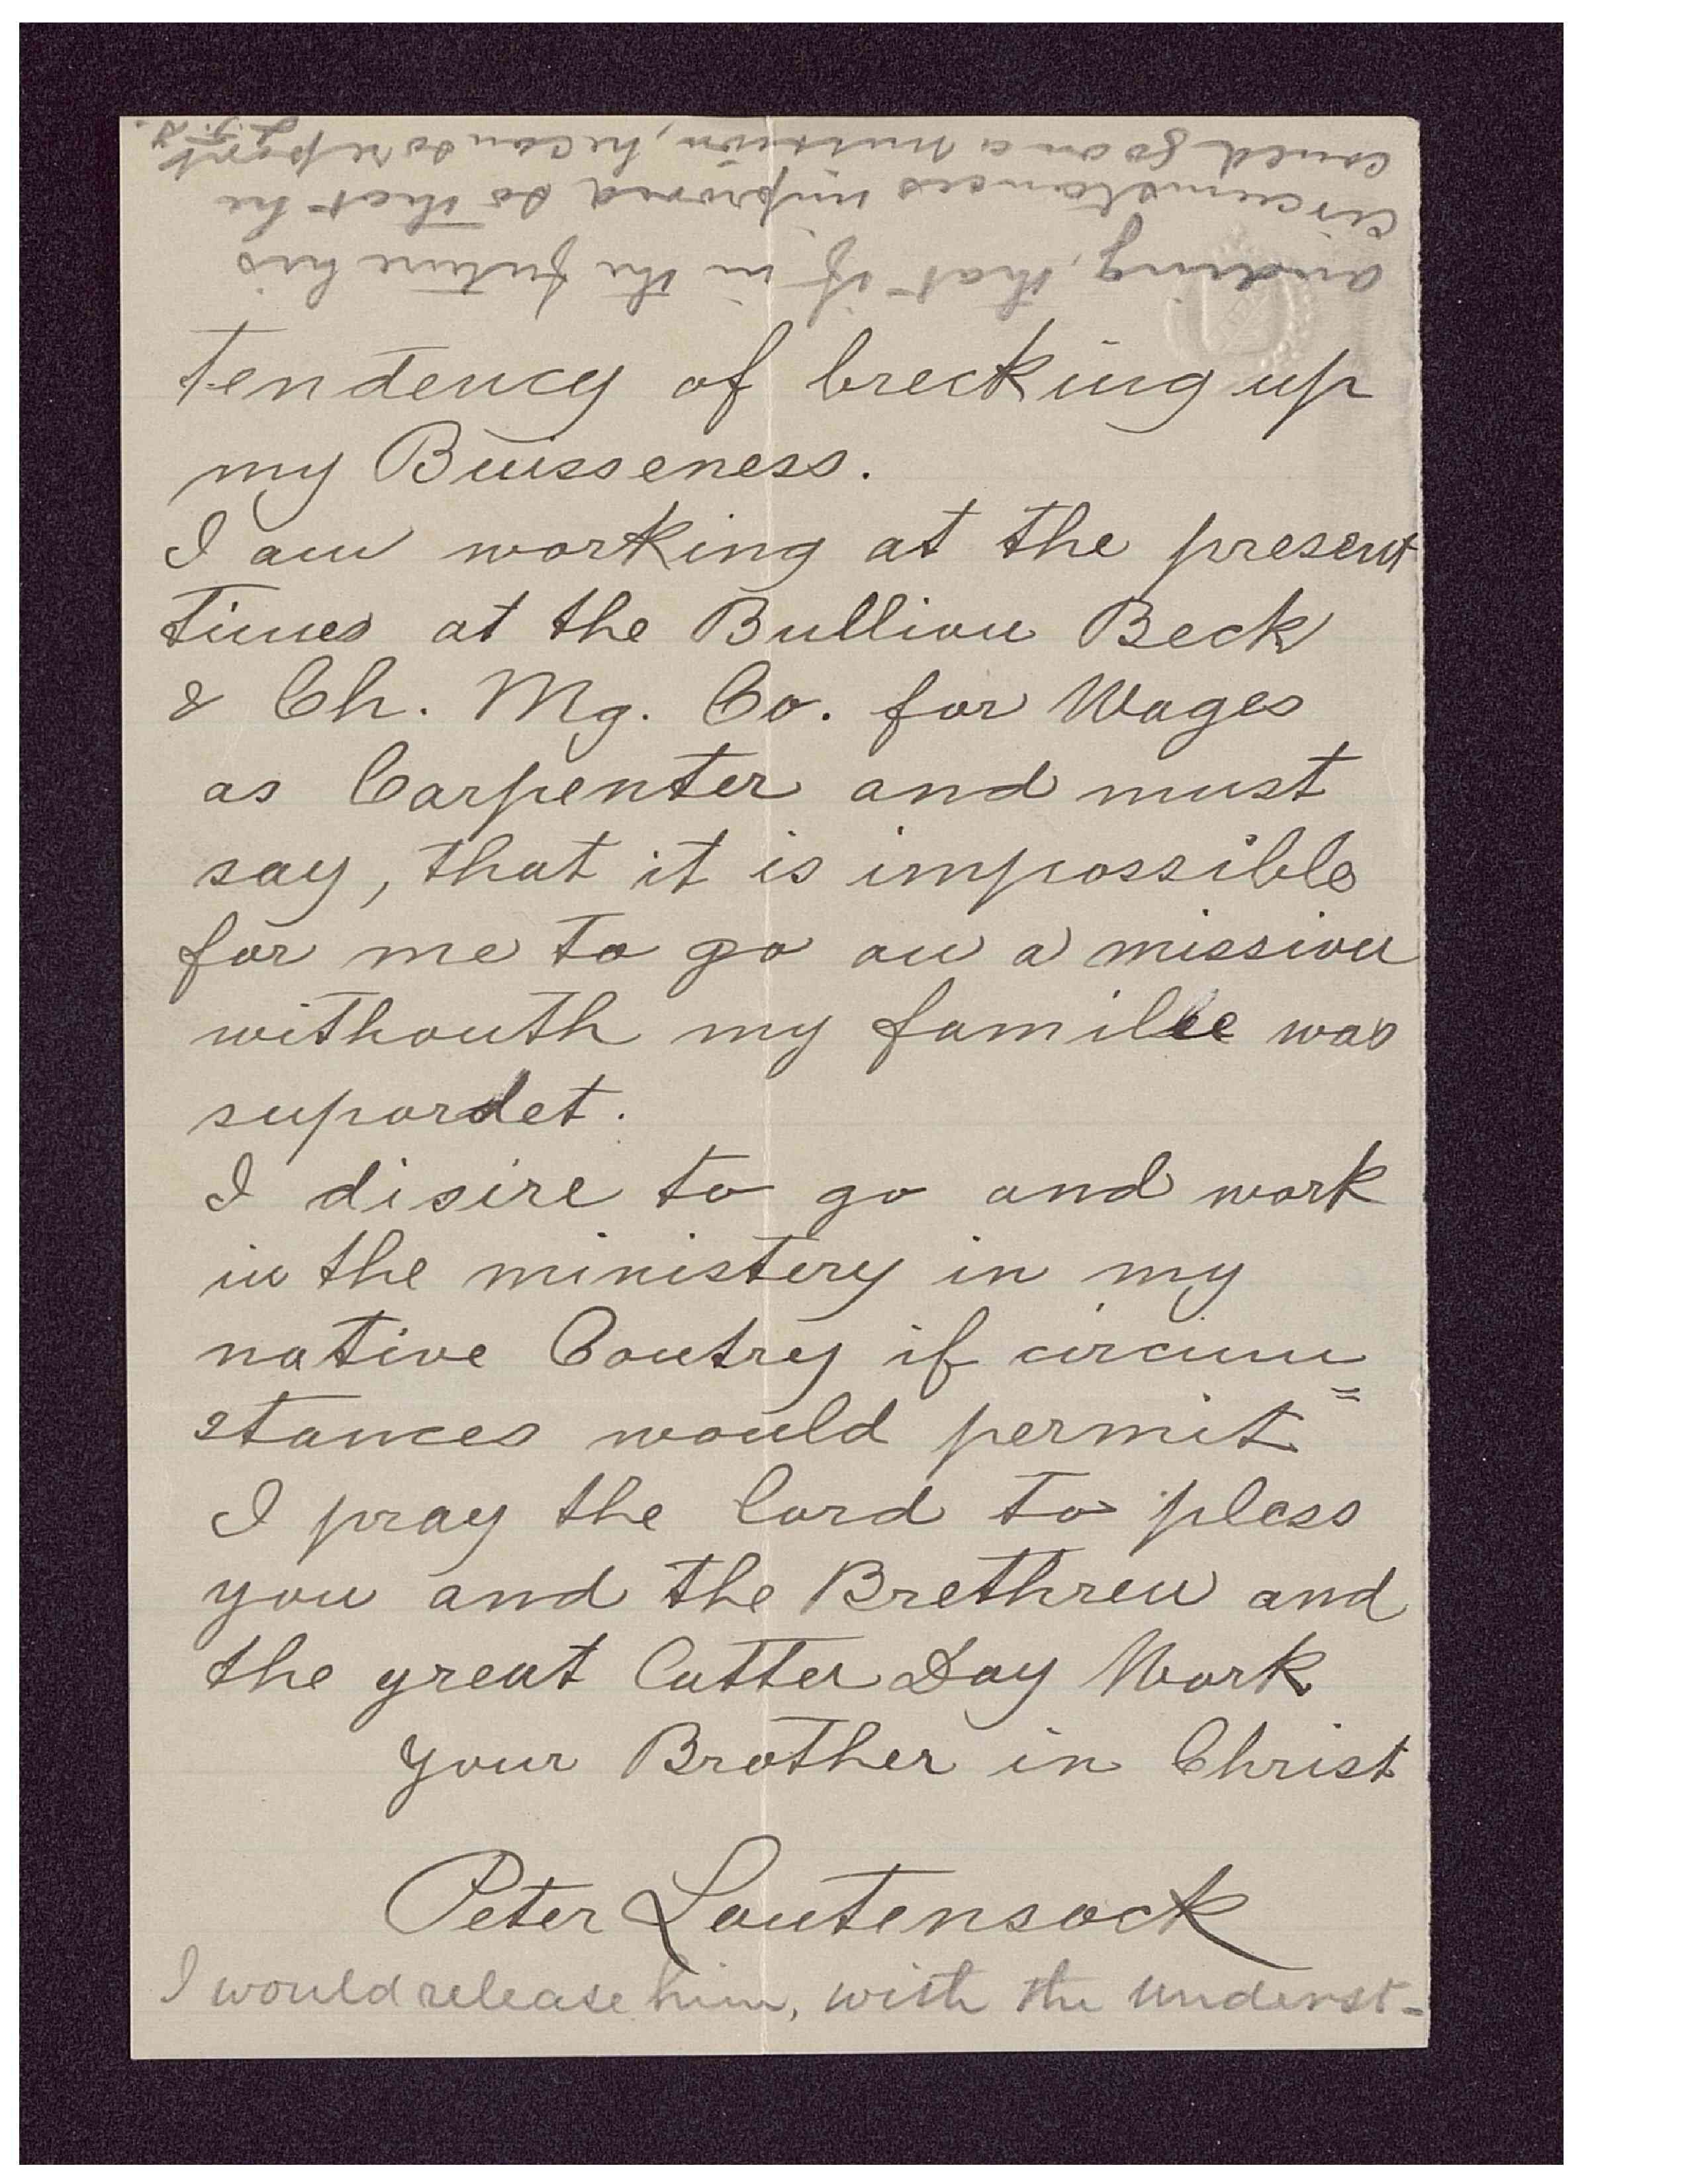 tendency of brecking up
my Buisseness.
I am working at the present
times at the Bullion Beck
& Ch. Mg. Co. for Wages
as Carpenter and must
say, that it is impossible
for me to go on a mission
withouth my familee was
supordet.
I disire to go and work
in the ministery in my
native Coutry if circum=
stances would permit
I pray the Lord to pless
you and the Brethren and
the great Latter Day Work
Your Brother in Christ
Peter Lautensock
I would release him, with the underst-
anding, that if in the future his
circumstances improved so that he
could go on a mission, he can so report
J.F.S.